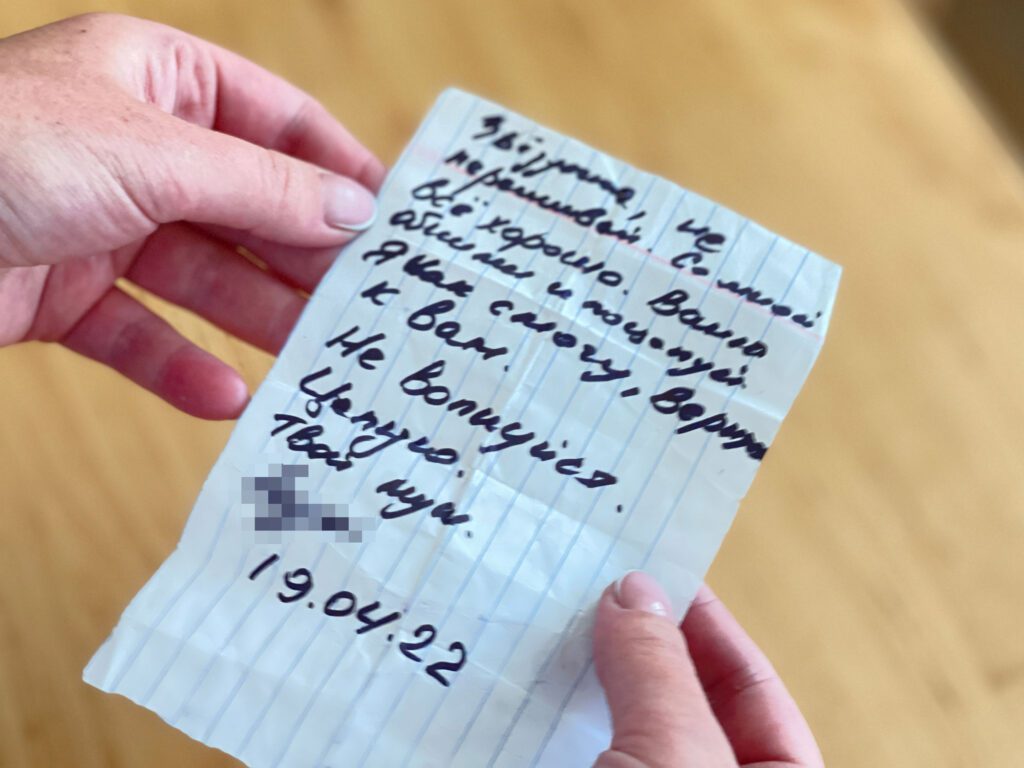 не
переживай. Со мной
всё хорошо. Ваню
обними и поцелуй.
Я как смогу, вернусь
к вам.
Не волнуйся.
Целую.
Твой муж.
19.04.22